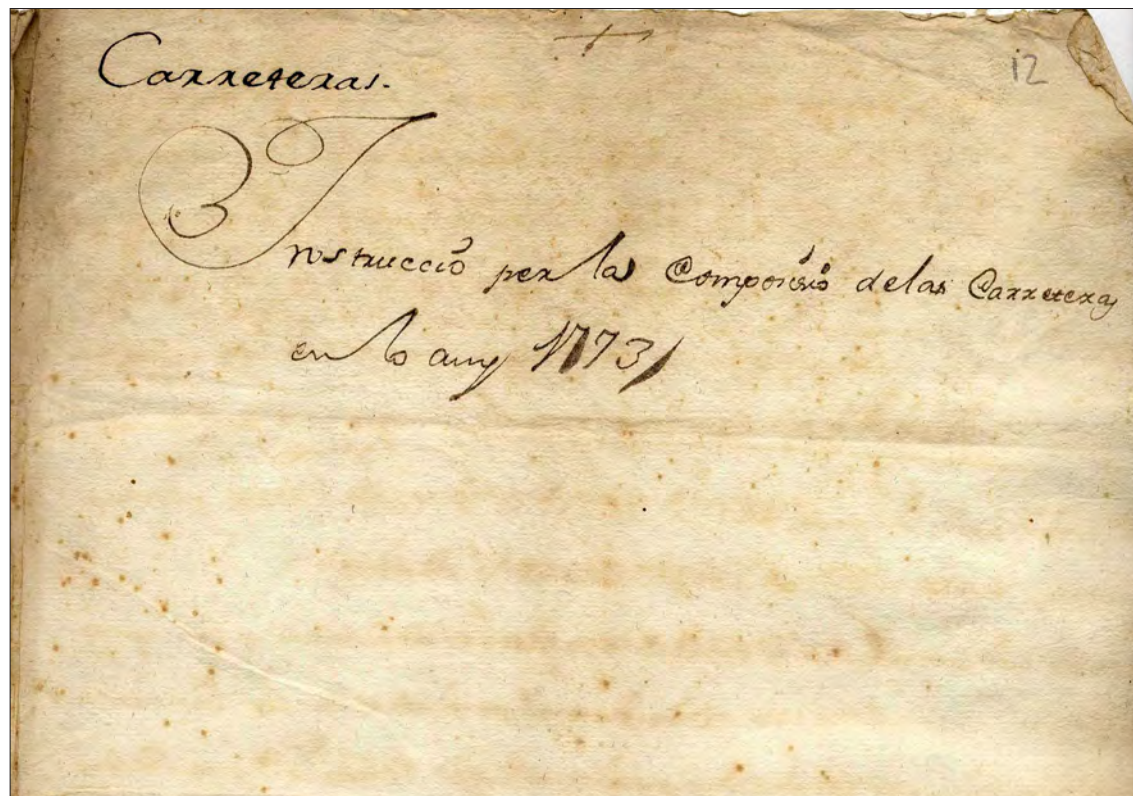 12
Carreteras.
Instrucció per la Composició de las Carreteras
en lo any 1773